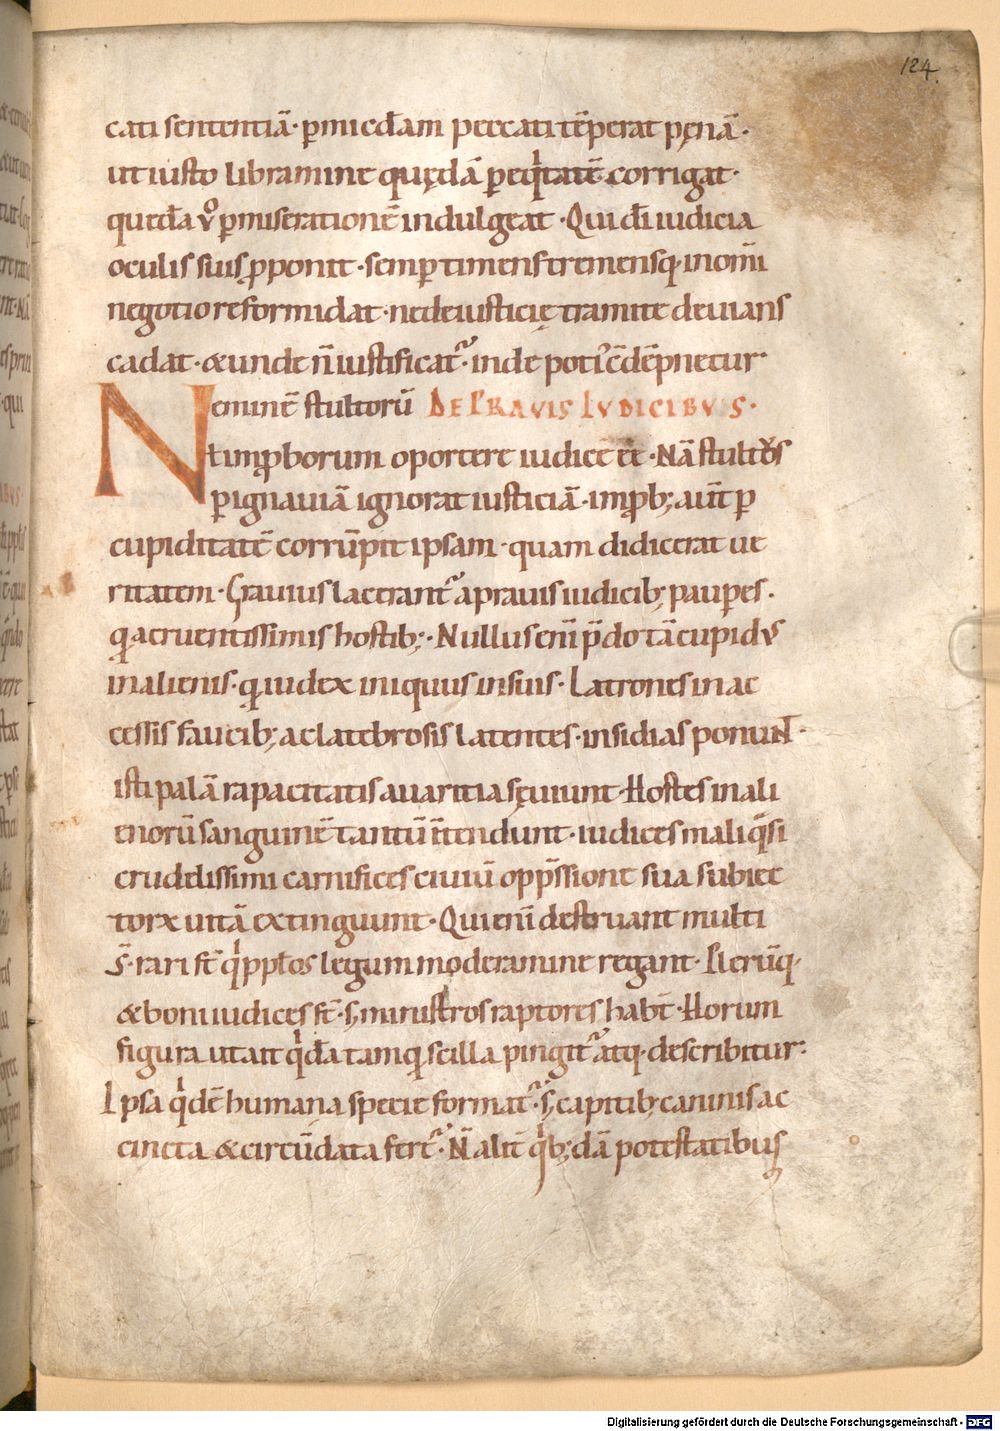 124.
cati sententiā· ꝑ miẜcdiam peccati tēperat pęnā·
ut iusto libramine quędā ꝑ equitatē corrigat·
quedā ṽo ꝑ miserationē indulgeat· Qui dī iudicia
oculis suis ꝓponit· semꝑ timens tremensq; in om̄i
negotio reformidat· ne de iusticię tramite devians
cadat· & unde n̄ iustificat᷑· inde poti᷒ c̄dēpnetur·
Neminē stultorū DE PRAVIS IVDICIBVS·
ł imꝓborum oportere iudicē ēē· Nā stultus
ꝑ ignauiā ignorat iusticiā· imꝓb; aut̄ ꝑ
cupiditatē corrūpit ipsam· quam didicerat ue
ritatem· Grauius lacerant᷑ a prauis iudicib; pauꝑes·
q̄ a cruentissimis hostib;· Nullus enī p̄do tā cupidus
in alienis· q̄ iudex iniquus in suis· Latrones in ac
cessis faucib; ac latebrosis latentes· insidias ponunt·
isti palā rapacitatis auaritia sęuiunt· Hostes in ali
enorū sanguinē tantū īntendunt· iudices mali q̄si
crudelissimi carnifices ciuiū opp̄ssione sua subiec
torꝝ uitā extinguunt· Qui enī destruant multi
S̄· rari st̄ qⁱ ppłos legum moderamine regant· Pleruq;·
& boni iudices st̄· s; ministros raptores habēt· Horum
figura ut ait qⁱdā tamq̄ scilla pingit᷑ atq; describitur·
Ipsa qⁱdē humana specie format᷑· s; capitib; caninis ac
cincta & circūdata fert᷑· Nō alit̄ qⁱb;dā potestatibus
Digitalisierung gefördert durch die Deutsche Forschungsgemeinschaft - DFG